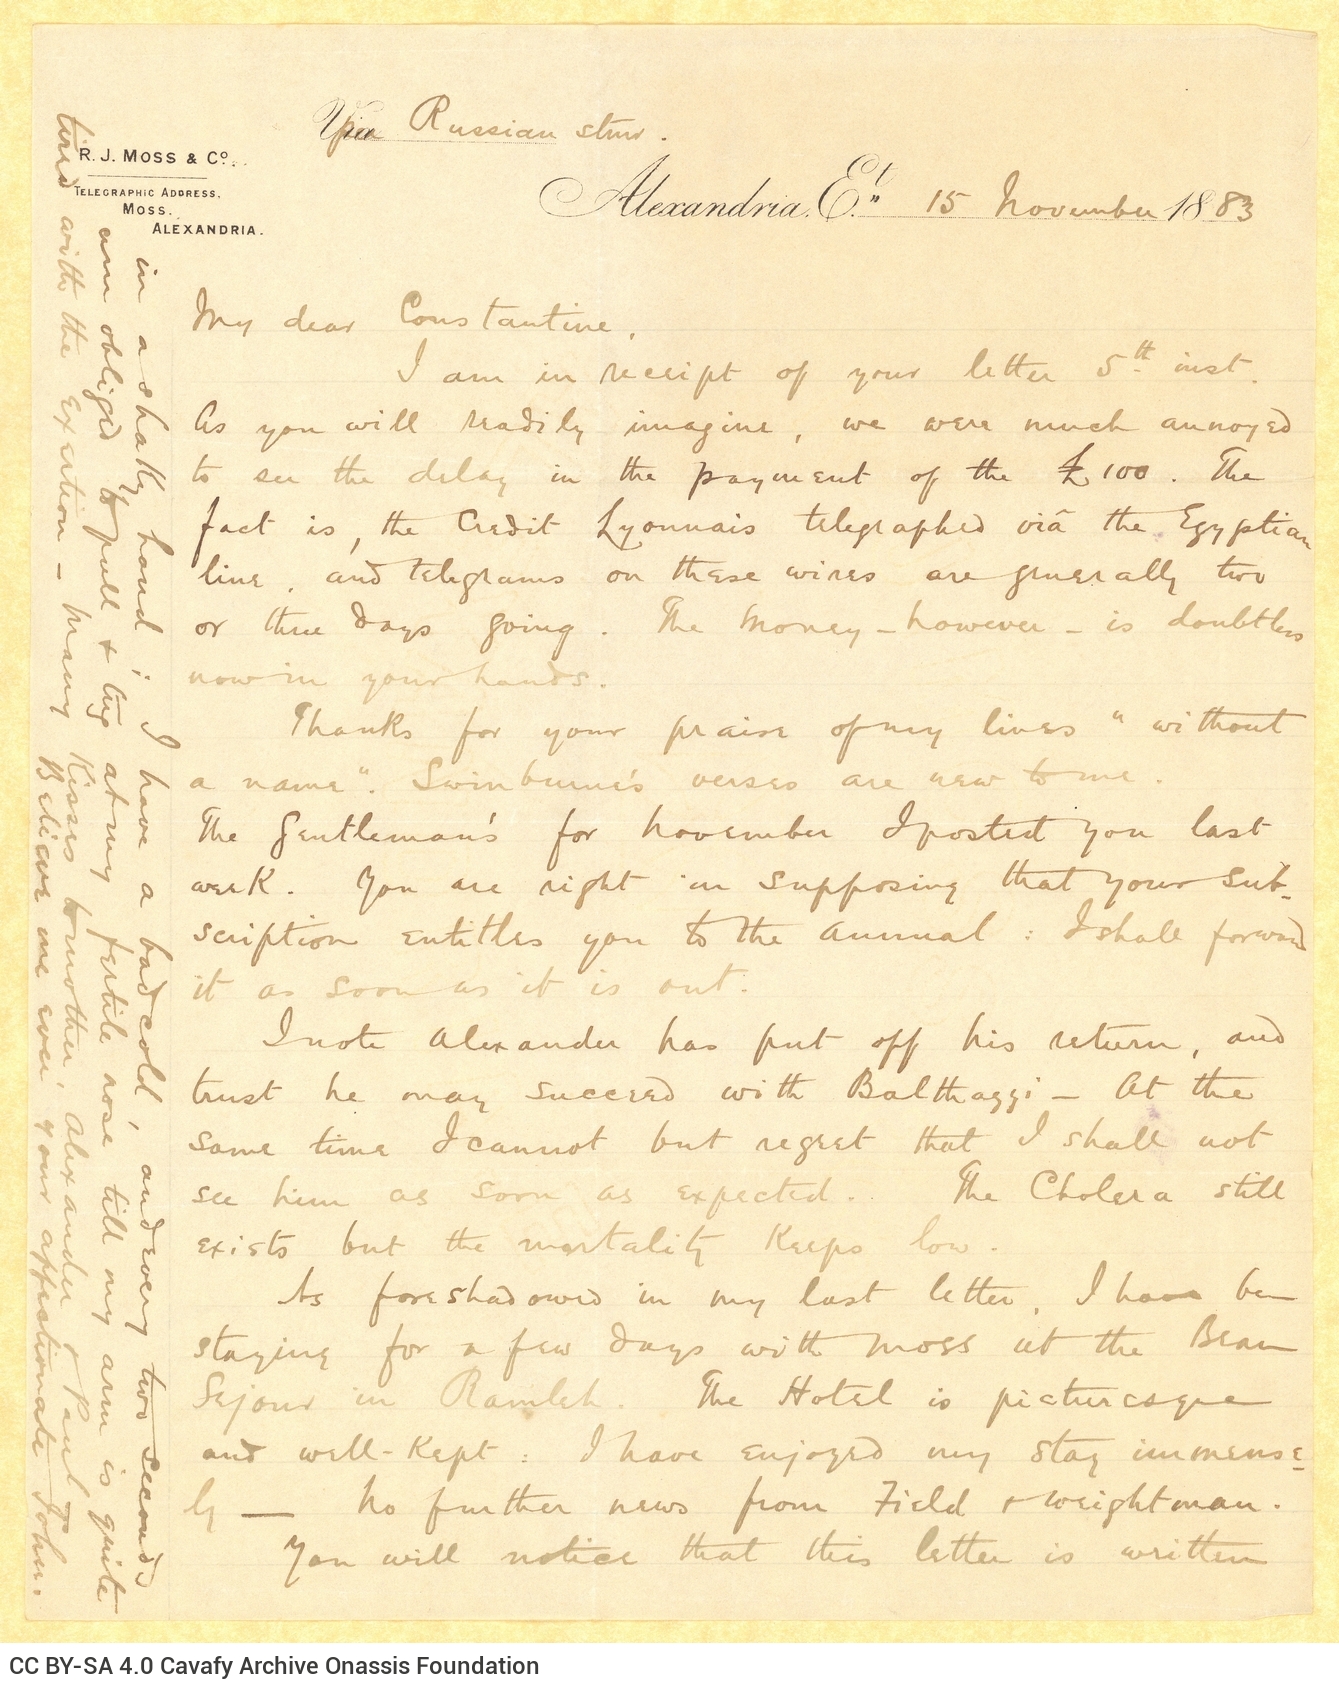 R. J. MOSS & Cº.
TELEGRAPHIC ADDRESS.
MOSS.
ALEXANDRIA.
Per Russian stmr.
Alexandria, Eᵗ. 15 November 1883
My dear Constantine,
I am in receipt of your letter 5th inst.
As you will readily imagine, we were much annoyed
to see the delay in the payment of the £100. The
fact is, the Credit Lyonnais telegraphed viâ the Egyptian
line, and telegrams on these wires are generally two
or three days going. The money – however – is doubtless
now in your hands.
Thanks for your praise of my lines "without
a name". Swinburne's verses are new to me.
The Gentleman's for November I posted you last
week. You are right in supposing that your sub-
scription entitles you to the annual : I shall forward
it as soon as it is out.
I note Alexander has put off his return, and
trust he may succeed with Balthaggi – At the
same time I cannot but regret that I shall not
see him as soon as expected. The Cholera still
exists but the mortality keeps low.
As foreshadowed in my last letter, I have been
staying for a few days with Moss at the Beau
Séjour in Ramleh. The Hotel is picturesque
and well-kept : I have enjoyed my stay immense-
ly — No further news from Field & Wrightman.
You will notice that this letter is written
in a shaky hand ; I have a bad cold, and every two seconds
am obliged to pull & tug at my fertile nose till my arm is quite
tired with the exertion – Many Kisses to mother, Alexander & Paul –
Believe me ever your affectionate John.
CC BY-SA 4.0 Cavafy Archive Onassis Foundation